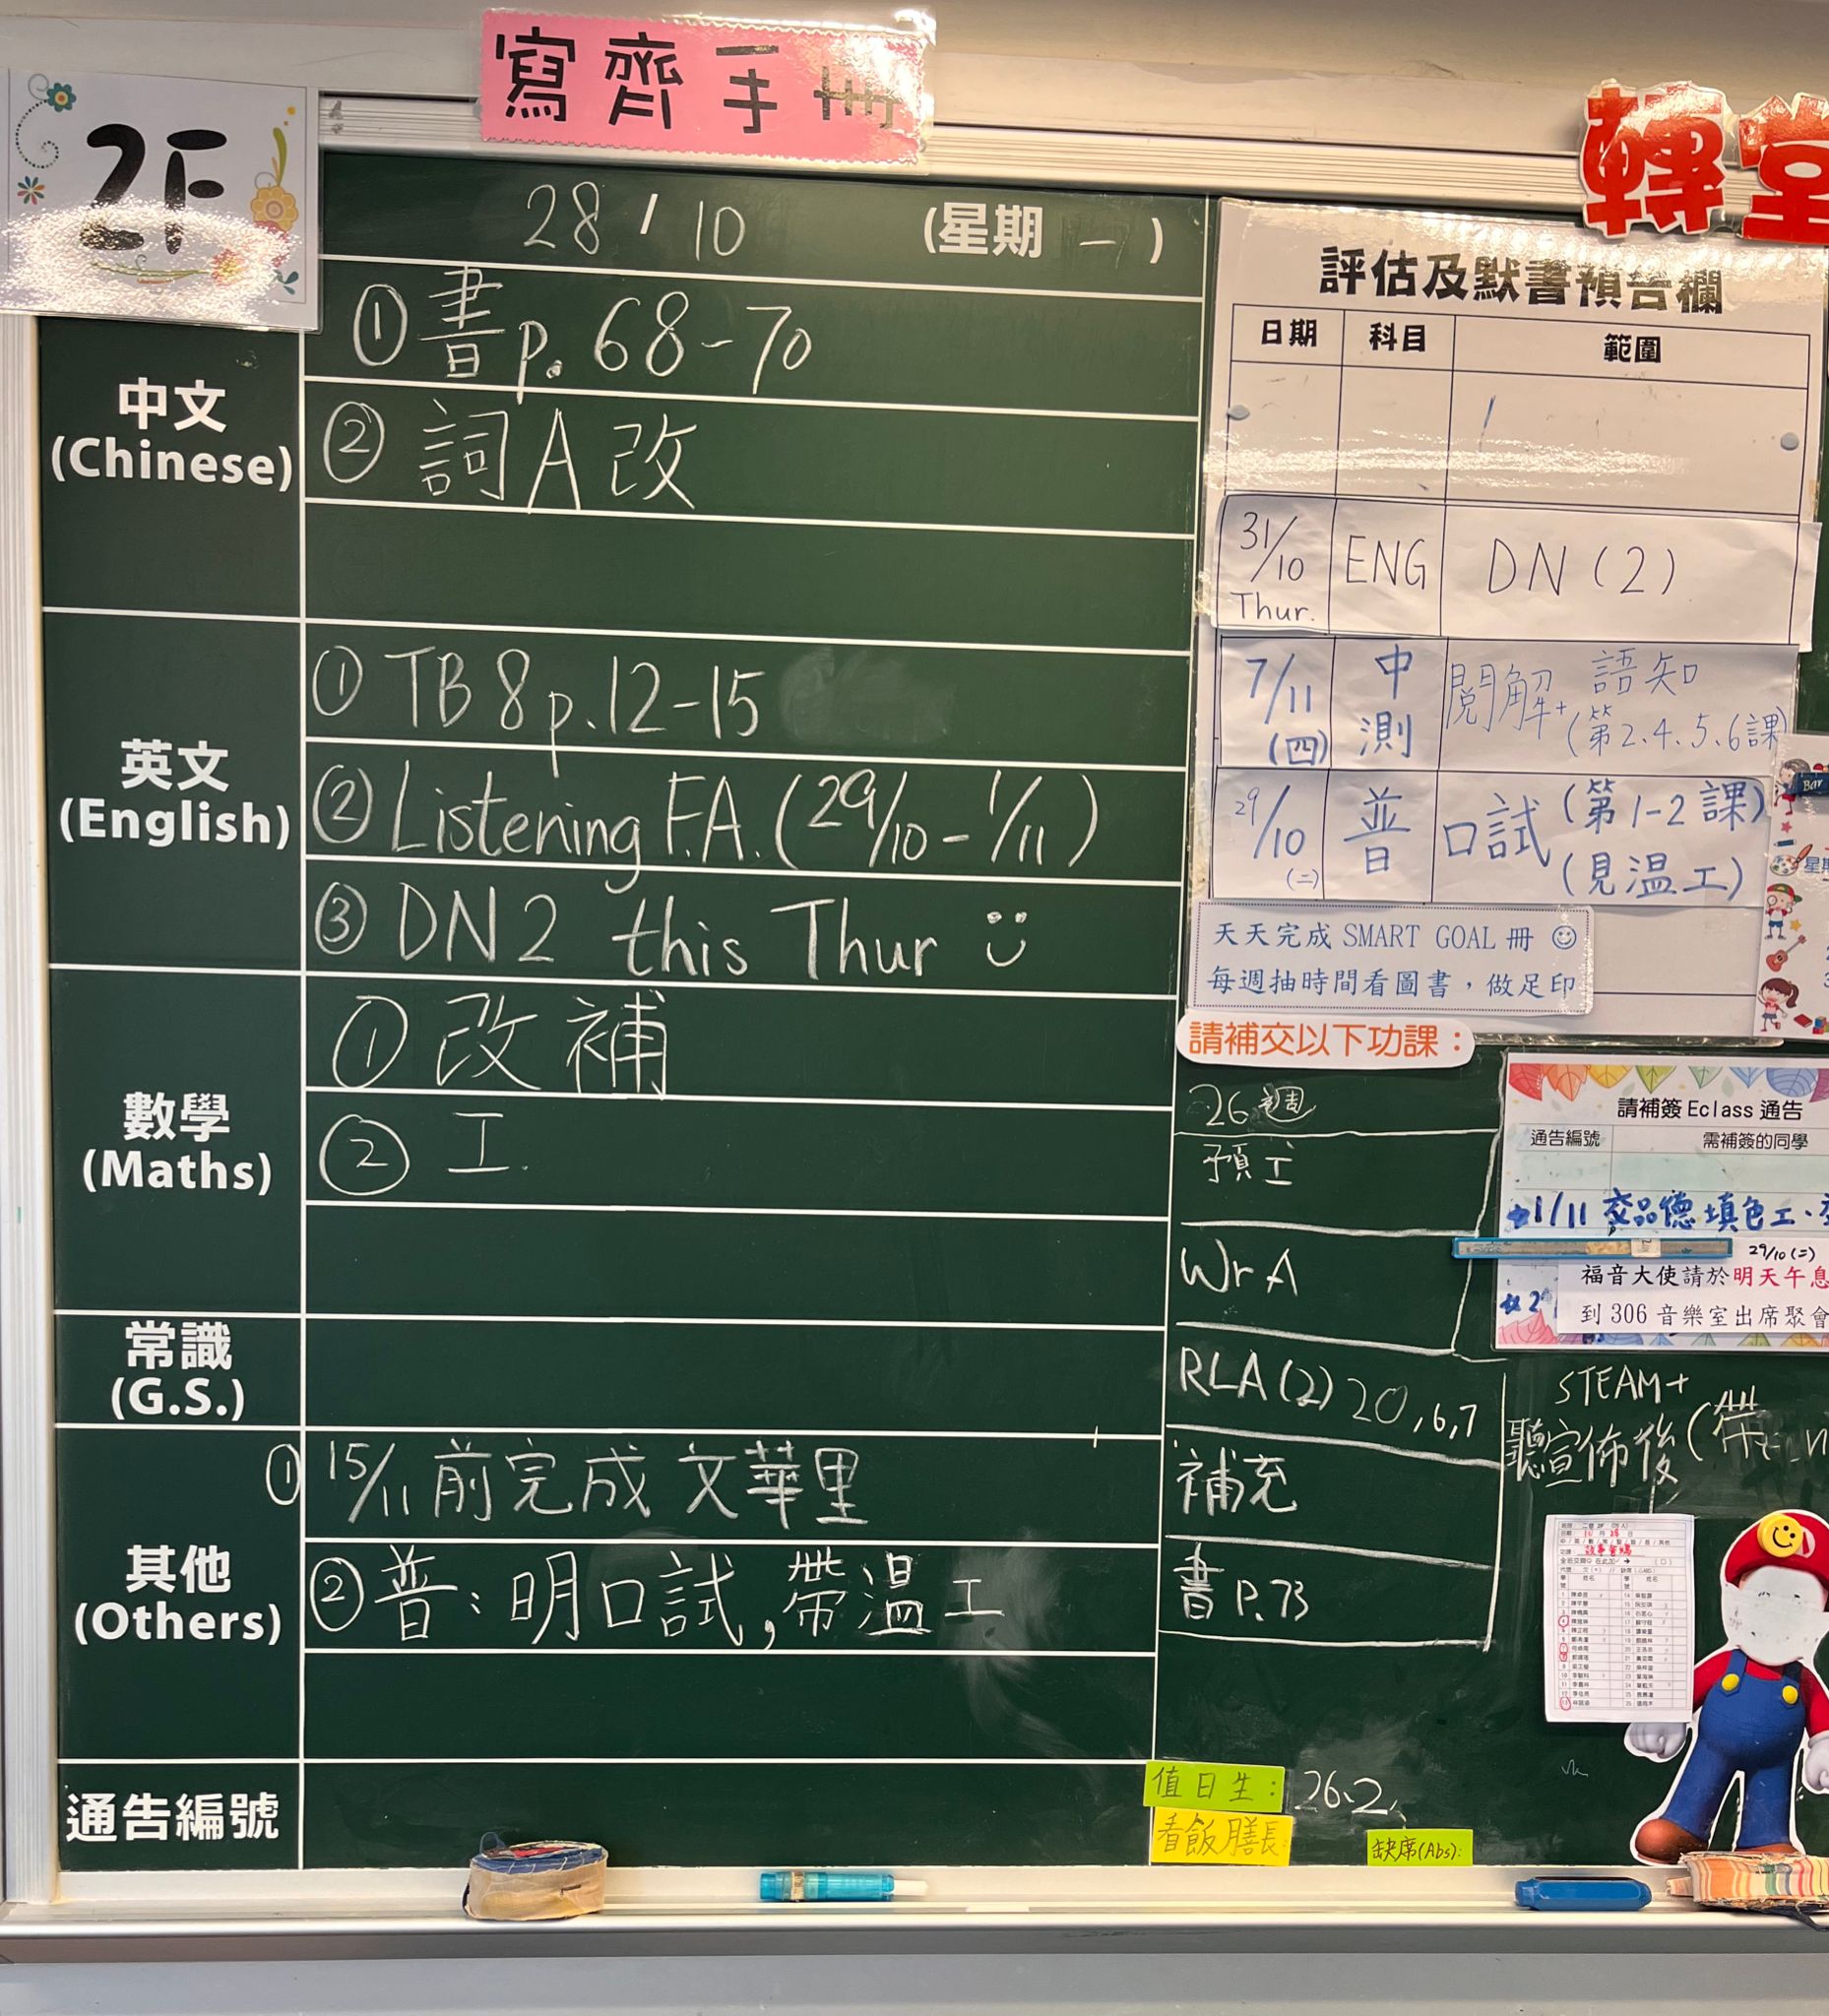 寫齊手冊
2F
轉堂
28 / 10 (星期 一 )
中文
(Chinese)
① 書 p. 68-70
② 詞 A 改
英文
(English)
① TB 8 p. 12-15
② Listening F.A. (29/10 - 1/11)
③ DN 2 this Thur
數學
(Maths)
① 改補
② 工.
常識
(G.S.)
其他
(Others)
① 15/11 前完成 文華里
② 普：明口試, 帶溫工
通告編號
評估及默書預告欄
日期 科目 範圍
31/10 Thur. ENG DN (2)
7/11 (四) 中測 閱解+ 語知 (第2.4.5.6課)
29/10 (二) 普 口試 (第1-2課) (見溫工)
天天完成 SMART GOAL 冊 ☺
每週抽時間看圖書，做足印
請補交以下功課：
26 週
預工
Wr A
RLA (2) 20, 6, 7
補充
書 P.73
請補簽 Eclass 通告
通告編號 需補簽的同學
1/11 交品德 填色工、
29/10 (二)
福音大使請於明天午息
到 306 音樂室出席聚會
STEAM+
聽宣佈後 (帶
值日生： 26.2.
看飯膳長：
缺席(Abs):